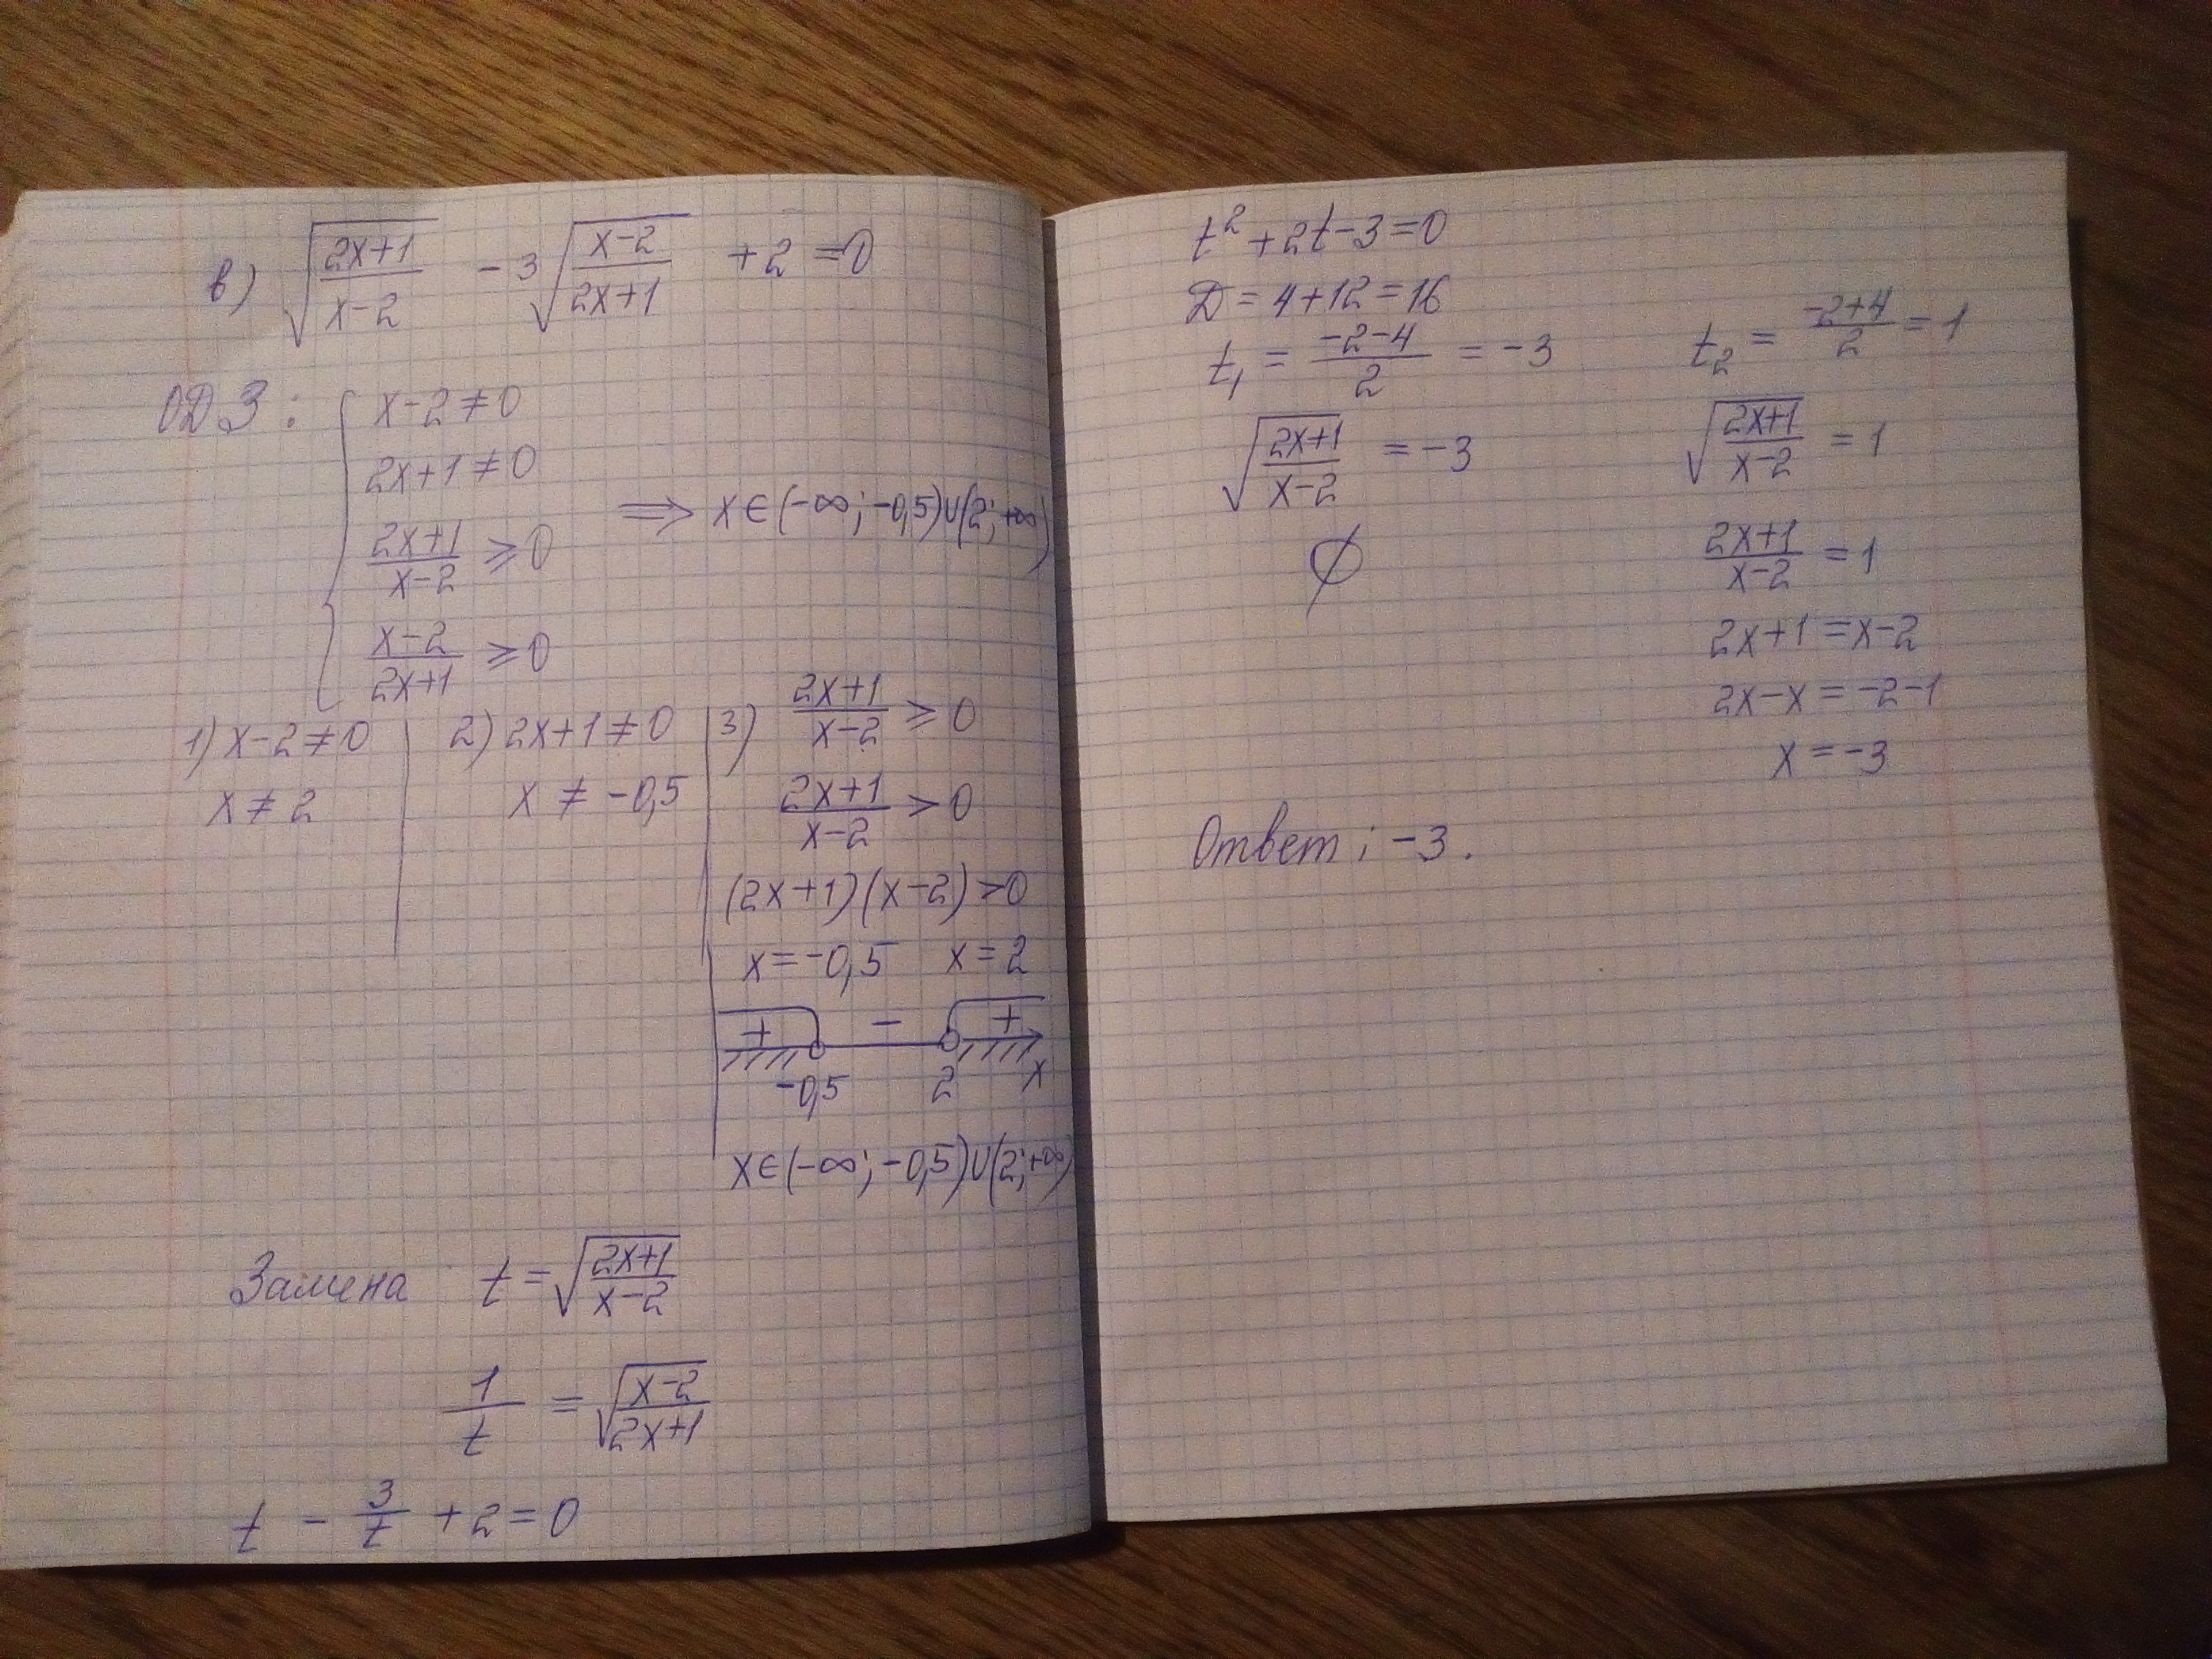 в) √((2x+1)/(x-2)) - 3√((x-2)/(2x+1)) + 2 = 0
ОДЗ: { x-2≠0
2x+1≠0
(2x+1)/(x-2) ⩾ 0
⟹ x∈(-∞; -0,5)∪(2; +∞)
(x-2)/(2x+1) ⩾ 0
1) x-2≠0
x≠2
2) 2x+1≠0
x≠-0,5
3) (2x+1)/(x-2) ⩾ 0
(2x+1)/(x-2) > 0
(2x+1)(x-2)>0
x=-0,5 x=2
+ - +
-0,5 2 x
x∈(-∞; -0,5)∪(2; +∞)
Замена t=√((2x+1)/(x-2))
1/t = √((x-2)/(2x+1))
t - 3/t + 2 = 0
t²+2t-3=0
D=4+12=16
t₁ = (-2-4)/2 = -3
√((2x+1)/(x-2)) = -3
∅
t₂ = (-2+4)/2 = 1
√((2x+1)/(x-2)) = 1
(2x+1)/(x-2) = 1
2x+1=x-2
2x-x=-2-1
x=-3
Ответ: -3.